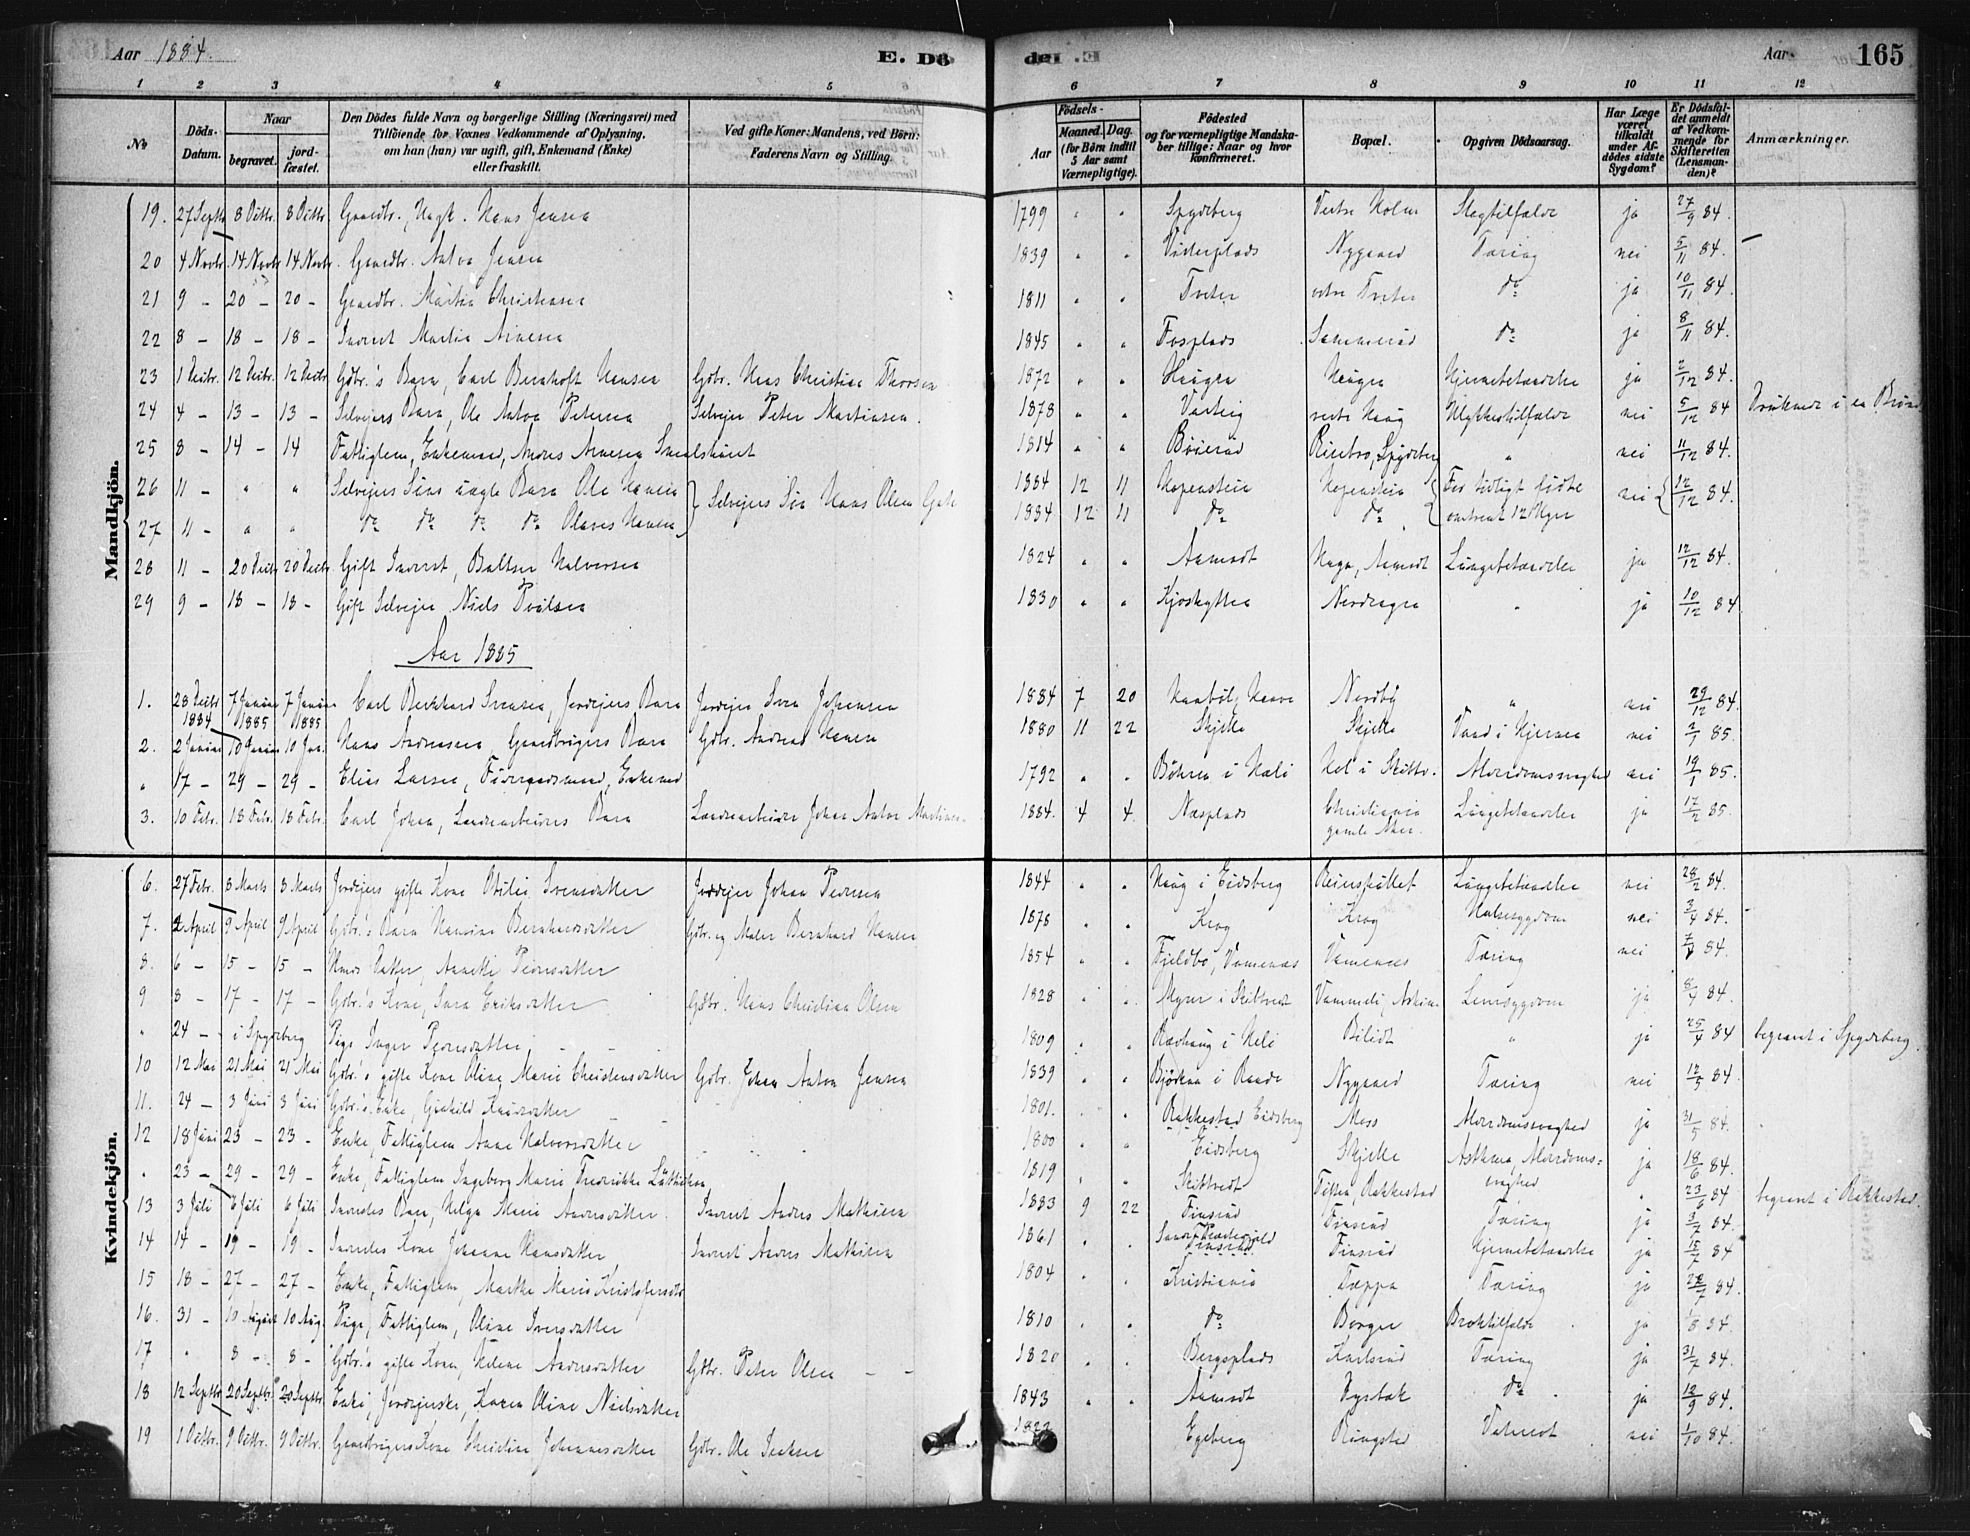 Aar 1884.
E. Dö
del
Aar
165
1 2 3 4 5 6
6 7 8 9 10 11 12
No
Döds-Datum.
Naar
begravet.
jordfæstet.
Den Dödes fulde Navn og borgerlige Stilling (Næringsvei) med Tilföiende for Voxnes Vedkommende af Oplysning, om han (hun) var ugift, gift, Enkemand (Enke) eller fraskilt.
Ved gifte Koner: Mandens, ved Börn: Faderens Navn og Stilling.
Födsels-
Aar
Maaned. Dag.
(for Börn indtil 5 Aar samt Værnepligtige).
Födested og for værnepligtige Mandskaber tillige: Naar og hvor konfirmeret.
Bopæl.
Opgiven Dödsaarsag.
Har Læge været tilkaldt under Afdödes sidste Sygdom?
Er Dödsfaldet anmeldt af Vedkommende for Skifteretten (Lensmanden)?
Anmærkninger.
Mandkjön.
19. 27 Septbr 8 Octbr. 8 Octbr. Gaardbr., Ungk. Hans Jensen 1799 " " Spydeberg Vestre Holm Slagtilfælde ja 27/9 84.
20 4 Novbr. 14 Novbr. 14 Novbr. Gaardbr. Anton Jensen 1839 " " Nygaard Tæring nei 5/11 84.
21 9 - 20 - 20 - Gaardbr. Martin Christensen 1811 " " Tveter østre Tveter do ja 10/11 84.
22 8 - 18 - 18 - Inderst Martin Arnesen 1845 " " Fosplads do ja 8/11 84.
23 1 Decbr. 12 Decbr. 12 Decbr. Gdbr.'s Barn, Carl Bernhoft Hansen Gdbr. Hans Christian Thorsen 1872 " " Haugen Haugen Hjernebetændelse ja 2/12 84.
24 4 - 13 - 13 - Selvejers Barn, Ole Anton Petersen Selvejer Peter Martinsen. 1878 " " Varteig Ulykkestilfælde nei 5/12 84 Druknede i en Brønd
25 8 - 14 - 14 Fattiglem, Enkemand, Anders Arnesen 1814 " " " nei 11/12 84.
26 11 - " " Selvejers Søns uægte Barn Ole Hansen } Selvejers Søn Hans Olsen 1884 12 11 Kopenstein Kopenstein } For tidligt fødte nei { 12/12 84.
27 11 - " " do do do do Olaves Hansen 1884 12 11 do do omtrent 12 Uger
28 11 - 20 Decbr 20 Decbr Gift Inderst, Baltser Halvorsen 1824 " " Aamodt Haga, Aamodt Lungebetændelse ja 12/12 84.
29 9 - 18 - 18 - Gift Selvejer, Niels Poulsen 1830 " " " ja 10/12 84
Aar 1885
1. 28 Decbr 1884 7 Januar 1885 7 Januar 1885 Carl Berkhard Svensen, Jordejers Barn Jordejer Sven Johansen 1884 7 20 Nordby " nei 29/12 84.
2. 2 Januar 10 Januar 10 Jan. Hans Andreassen, Gaardbrugers Barn Gdbr. Andreas Hansen 1880 11 22 Skjelle Skjelle Vand i Hjernen nei 3/1 85.
" 17 - 29 - 29 - Elias Larsen, Føderaadsmand, Enkemd 1792 " " Alderdomssvaghed nei 19/1 85.
3. 10 Febr. 18 Febr. 18 Febr. Carl Johan, Landarbeiders Barn Landarbeider Johan Anton Martinsen. 1884. 4 4. Næsplads Christiania gamle Aker. Lungebetændelse ja 17/2 85.
Kvindekjön.
6. 27 Febr. 8 Marts 8 Marts Jordejers gifte Kone Otilie Svensdatter Jordejer Johan Pedersen 1844 " " Haug i Eidsberg Lungebetændelse nei 28/2 84.
7. 2 April 9 April 9 April Gdbr.'s Barn Hansine Bernhardsdatter Gdbr. og Maler Bernhard Hansen 1878 " " Krog Krog Halsesygdom nei 3/4 84.
8. 6 - 15 - 15 - Datter, Annette Pedersdatter 1854 " " Tæring nei 7/4 84.
9 8 - 17 - 17 - Gdbr.'s Kone, Sara Eriksdatter Gdbr. Hans Christian Olsen 1828 " " Myrer i Skibtvedt Lemsygdom ja 8/4 84.
" 24 - i Spydeberg Pige Inger Pedersdatter 1809 " " " ja 25/4 84 begravet i Spydeberg.
10 12 Mai 21 Mai 21 Mai Gdbr.'s gifte Kone Oline Marie Christensdatter Gdbr. Johan Anton Jensen 1839 " " Nygaard Tæring nei 12/5 84.
11. 24 - 3 Juni 3 Juni Gdbr.'s Enke, Gunhild Knudsdatter 1801. " " Rakkestad Eidsberg Moss Alderdomssvaghed ja 31/5 84.
12 18 Juni 23 - 23 - Enke, Fattiglem Anne Halvorsdatter 1800 " " Eidsberg Skjelle Asthma, Alderdoms=svaghed ja 18/6 84.
" 23 - 29 - 29 - Enke, Fattiglem Ingeborg Marie Fredrikke 1819 " " Skibtvedt Rakkestad " 23/6 84 begravet i Rakkestad.
13 3 Juli 6 Juli 6 Juli Inderstes Barn, Helga Marie Andersdatter. Inderst Anders Mathisen 1883 9 22 Finsrud Finsrud Tæring ja 3/7 84.
14 14 - 19 - 19 - Inderstes Kone Johanne Hansdatter Inderst Anders Mathisen 1861 " " Finsrud Hjernebetændelse ja 15/7 84
15 18 - 27 - 27 - Enke, Fattiglem, Marthe Marie Kristofersdtr 1804 " " Kristiania Tæppa Tæring ja 84.
16. 31 - 10 August 10 Aug. Pige, Fattiglem, Oline Iversdatter 1810 " " do Borger Broktilfælde ja 1/8 84.
17 " 8 - 8 - Gdbr.'s gifte Kone, Helene Andersdatter Gdbr. Peter Olsen 1820 " " Bergsplads Karlsrud Tæring ja 31/7 84.
18 12 Septbr 20 Septbr. 20 Septbr. Enke, Jordejerske, Karen Oline Nielsdatter 1843 " " Aamodt do ja 12/9 84.
19 1 Octbr. 9 Octbr. 9 Octbr. Gaardbrugers Kone Christine Johannesdatter Gdbr. Ole Isaksen 1822 Egeberg Ringstad nei 2/10 84.